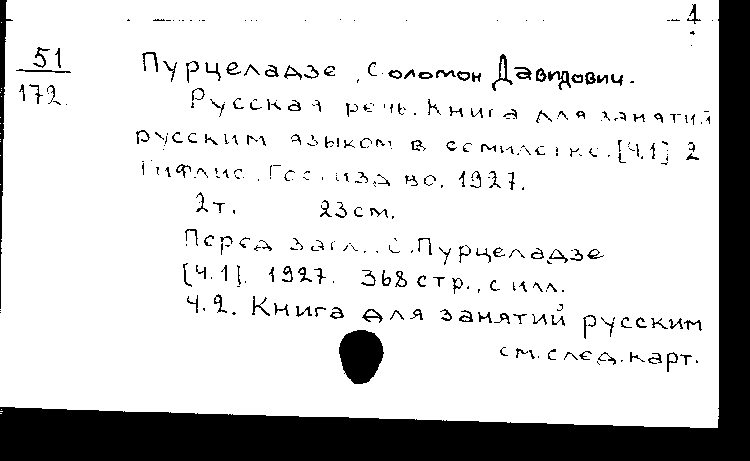 1
51
172.
Пурцеладзе, Соломон Давидович.
Русская речь. Книга для занятий
русским языком в семилетке. [Ч.1] 2
Тифлис. Гос. изд во. 1927.
2т. 23см.
Перед загл.: С. Пурцеладзе
[Ч.1]. 1927. 368 стр., с илл.
Ч.2. Книга для занятий русским
см. след. карт.